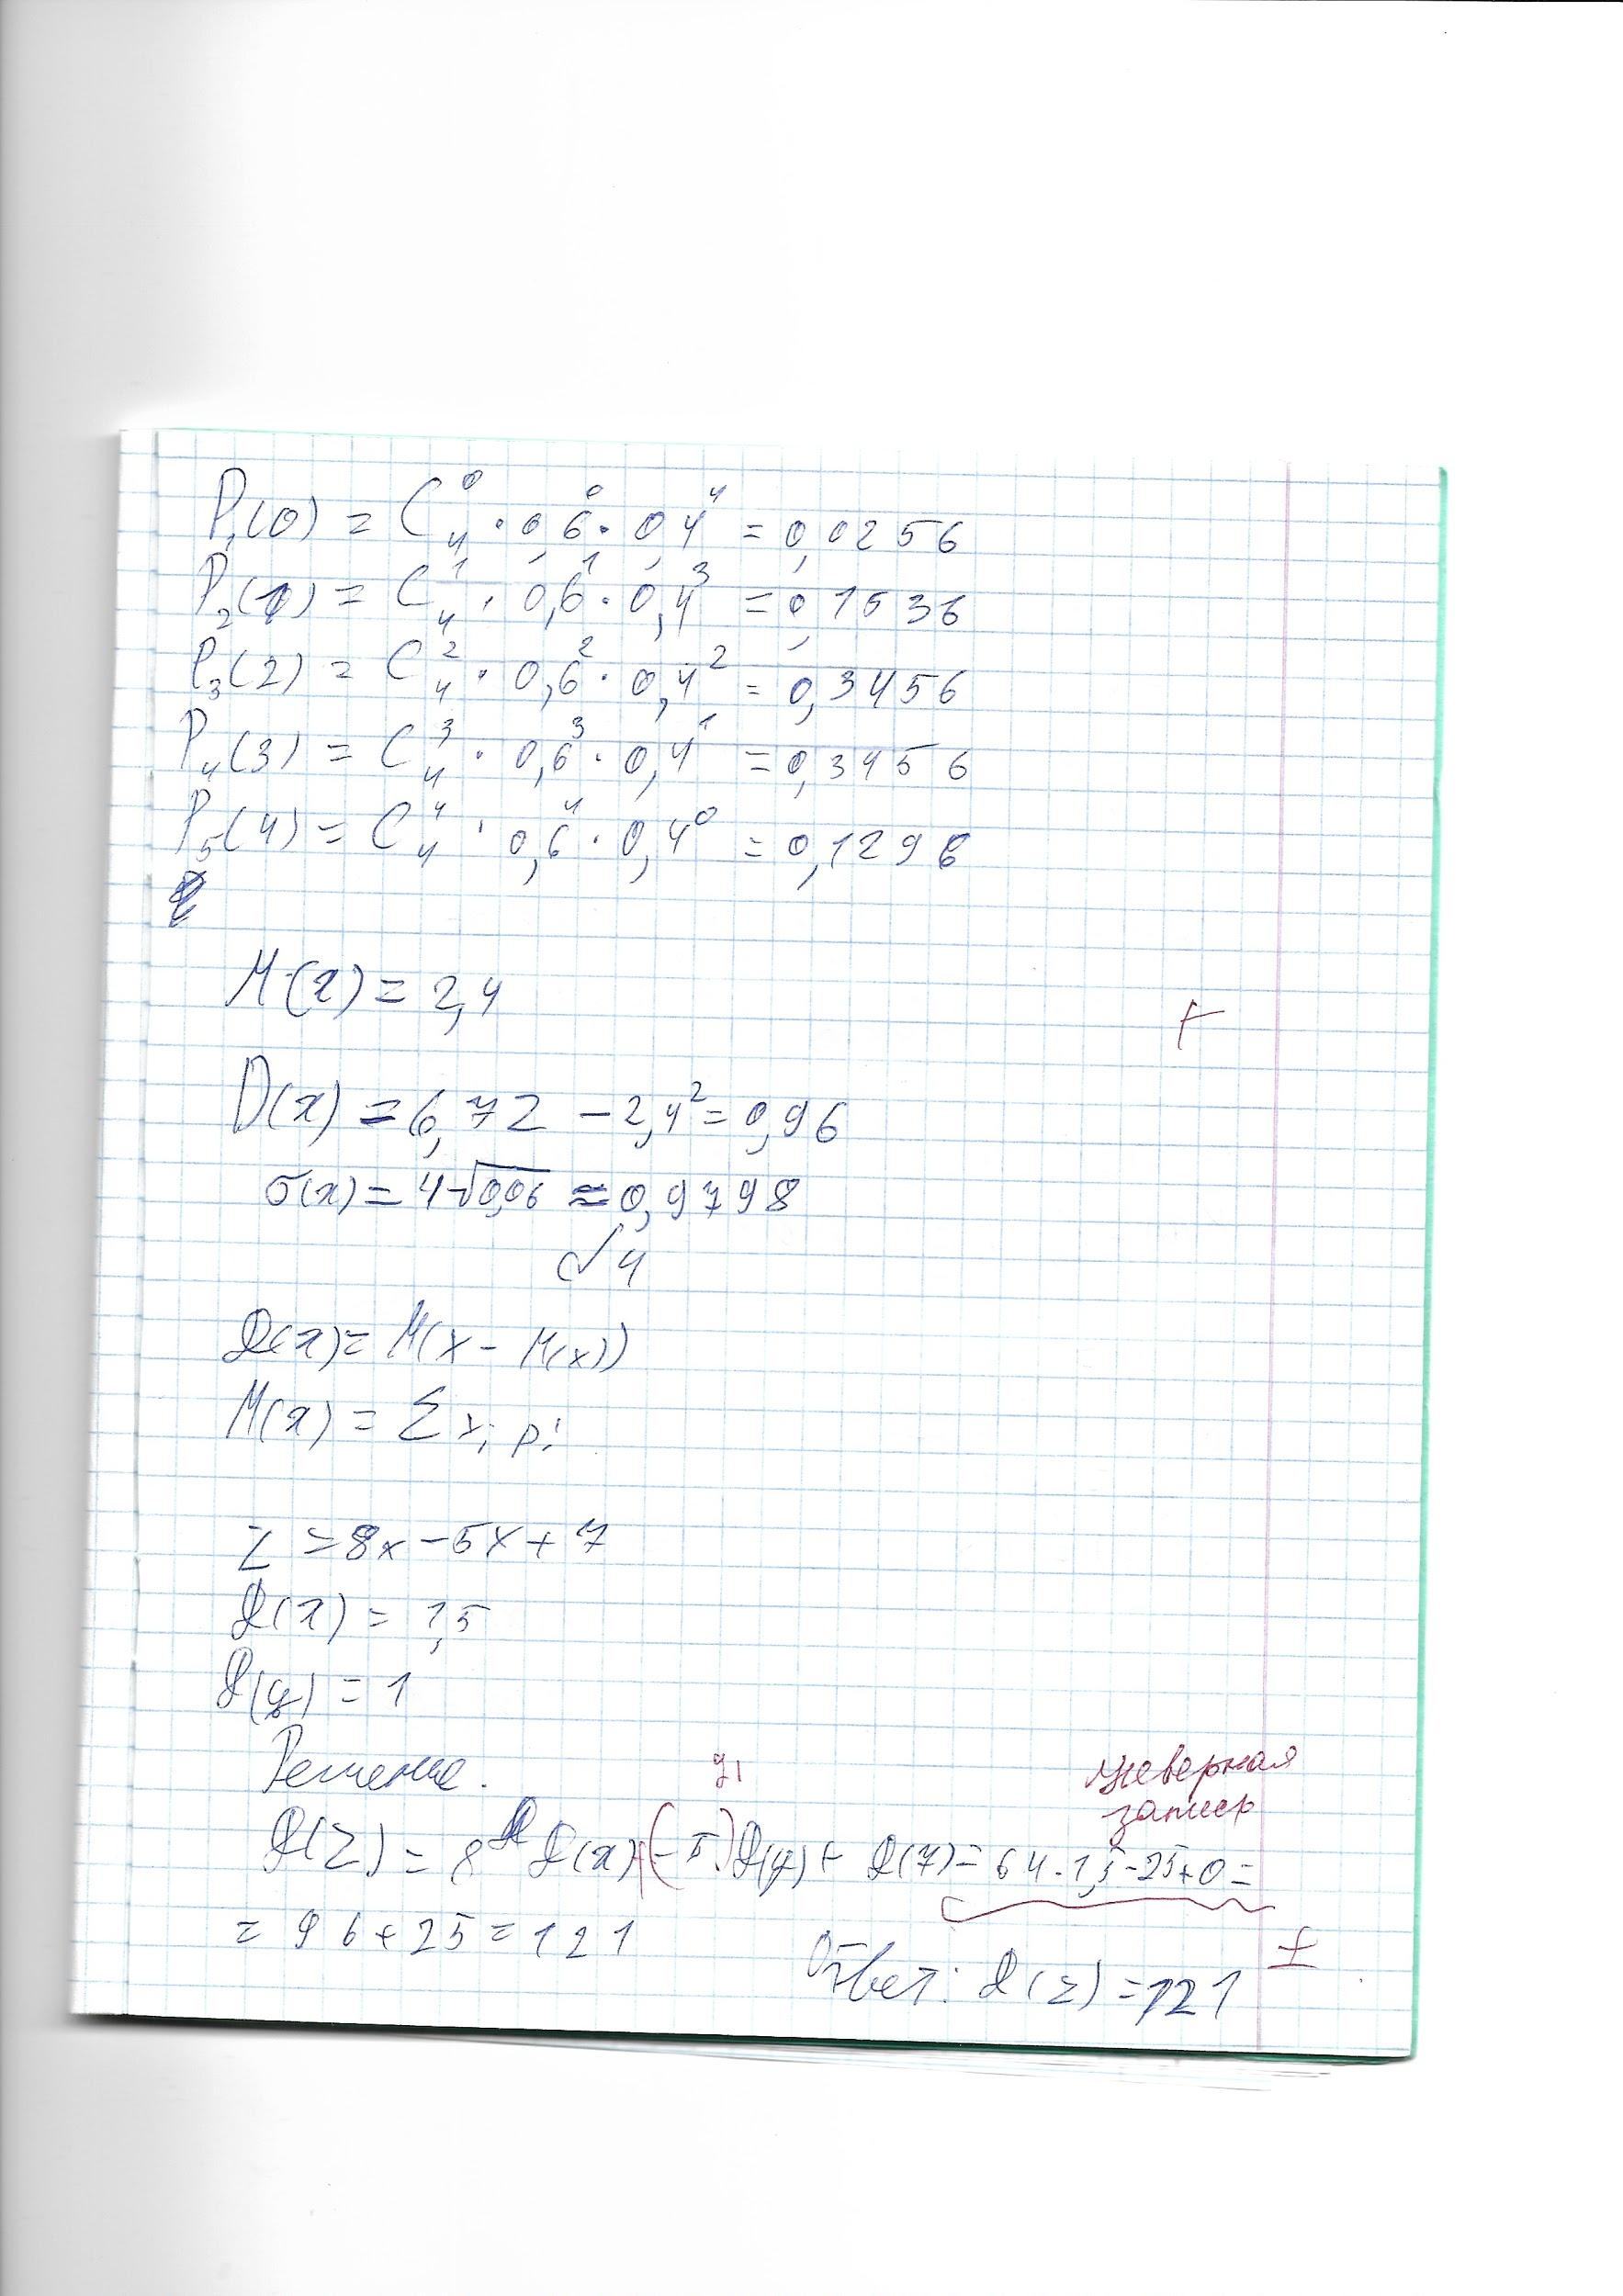 P₁(0) = C₄⁰ · 0,6⁰ · 0,4⁴ = 0,0256
P₂(1) = C₄¹ · 0,6¹ · 0,4³ = 0,1536
P₃(2) = C₄² · 0,6² · 0,4² = 0,3456
P₄(3) = C₄³ · 0,6³ · 0,4¹ = 0,3456
P₅(4) = C₄⁴ · 0,6⁴ · 0,4⁰ = 0,1296
M(x) = 2,4
+
D(x) = 6,72 - 2,4² = 0,96
σ(x) = 4√0,06 ≈ 0,9798
√4
D(x) = M(x - M(x))
M(x) = Σ xi pi
Z = 8x - 5x + 7
D(x) = 1,5
D(y) = 1
Решение.
неверная
запись
D(Z) = 8² D(x) + (-5) D(y) + D(7) = 64 · 1,5 - 25 + 0 =
= 96 + 25 = 121
±
Ответ: D(z) = 121